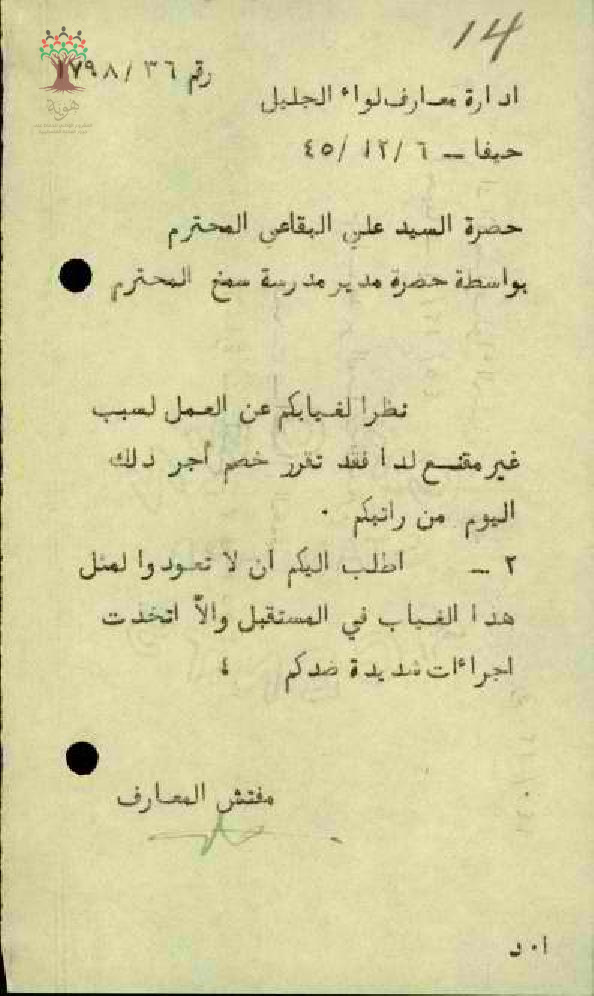 14
رقم ٣٦/ ١٧٩٨
ادارة معارف لواء الجليل
حيفا – ٦ /١٢/ ٤٥
حضرة السيد علي البقاعي المحترم
بواسطة حضرة مدير مدرسة سمخ المحترم
نظرا لغيابكم عن العمل لسبب
غير مقنع لذا فقد تقرر خصم أجر ذلك
اليوم من راتبكم .
٢ – اطلب اليكم ان لا تعودوا لمثل
هذا الغياب في المستقبل والاّ اتخذت
اجراءات شديدة ضدكم ٤
مفتش المعارف
ا٠ د
هوية